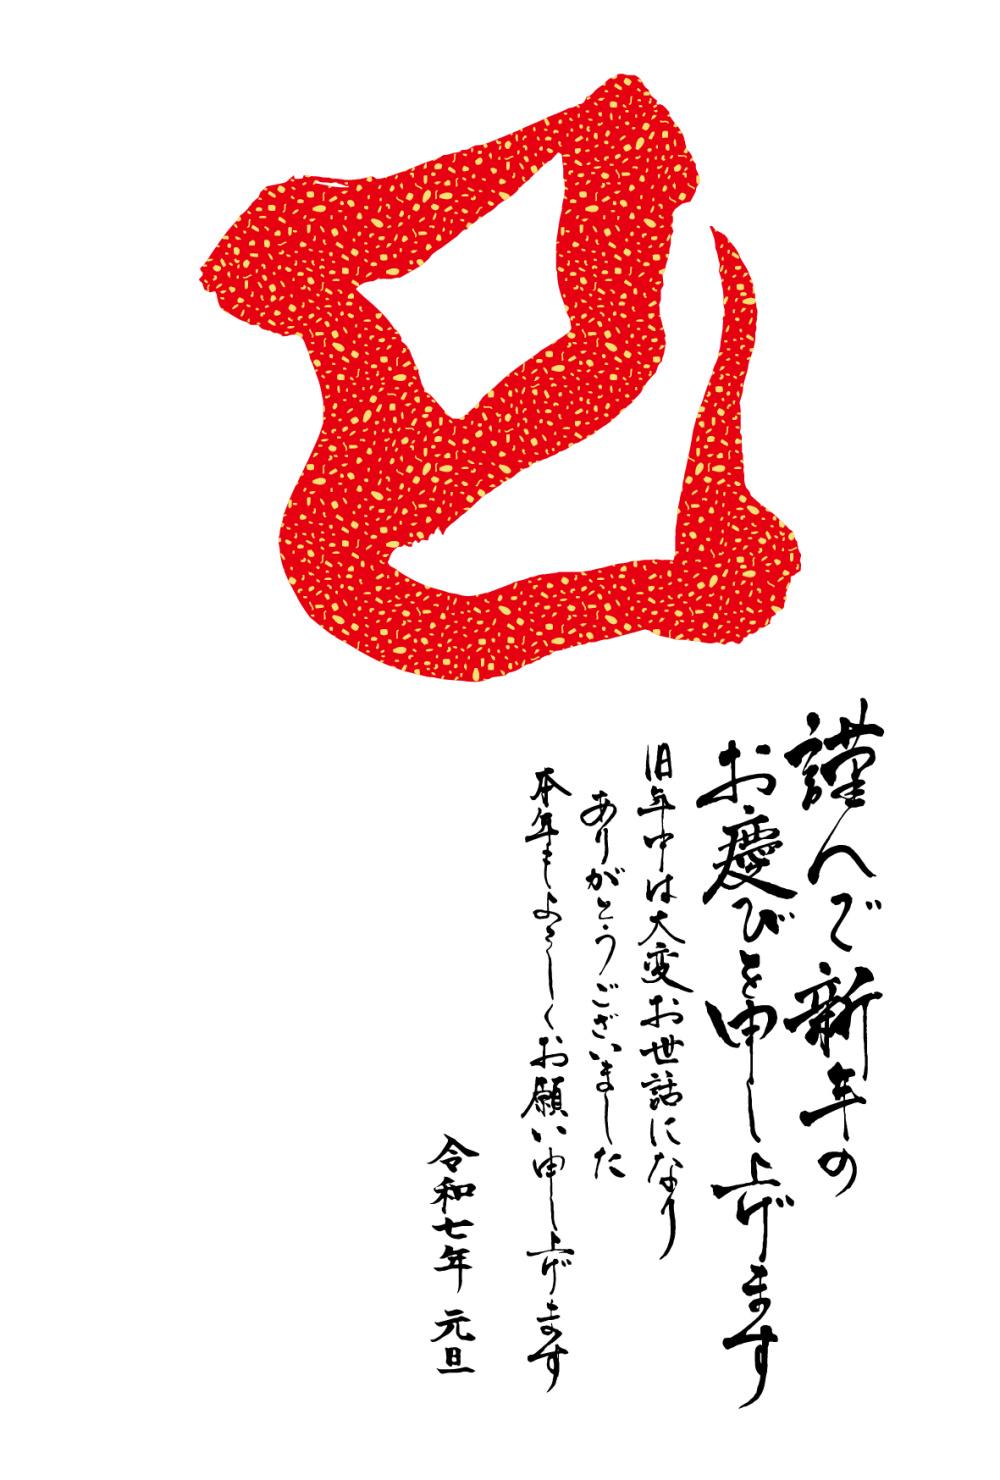 巳
謹んで新年の
お慶びを申し上げます
旧年中は大変お世話になり
ありがとうございました
本年もよろしくお願い申し上げます
令和七年 元旦